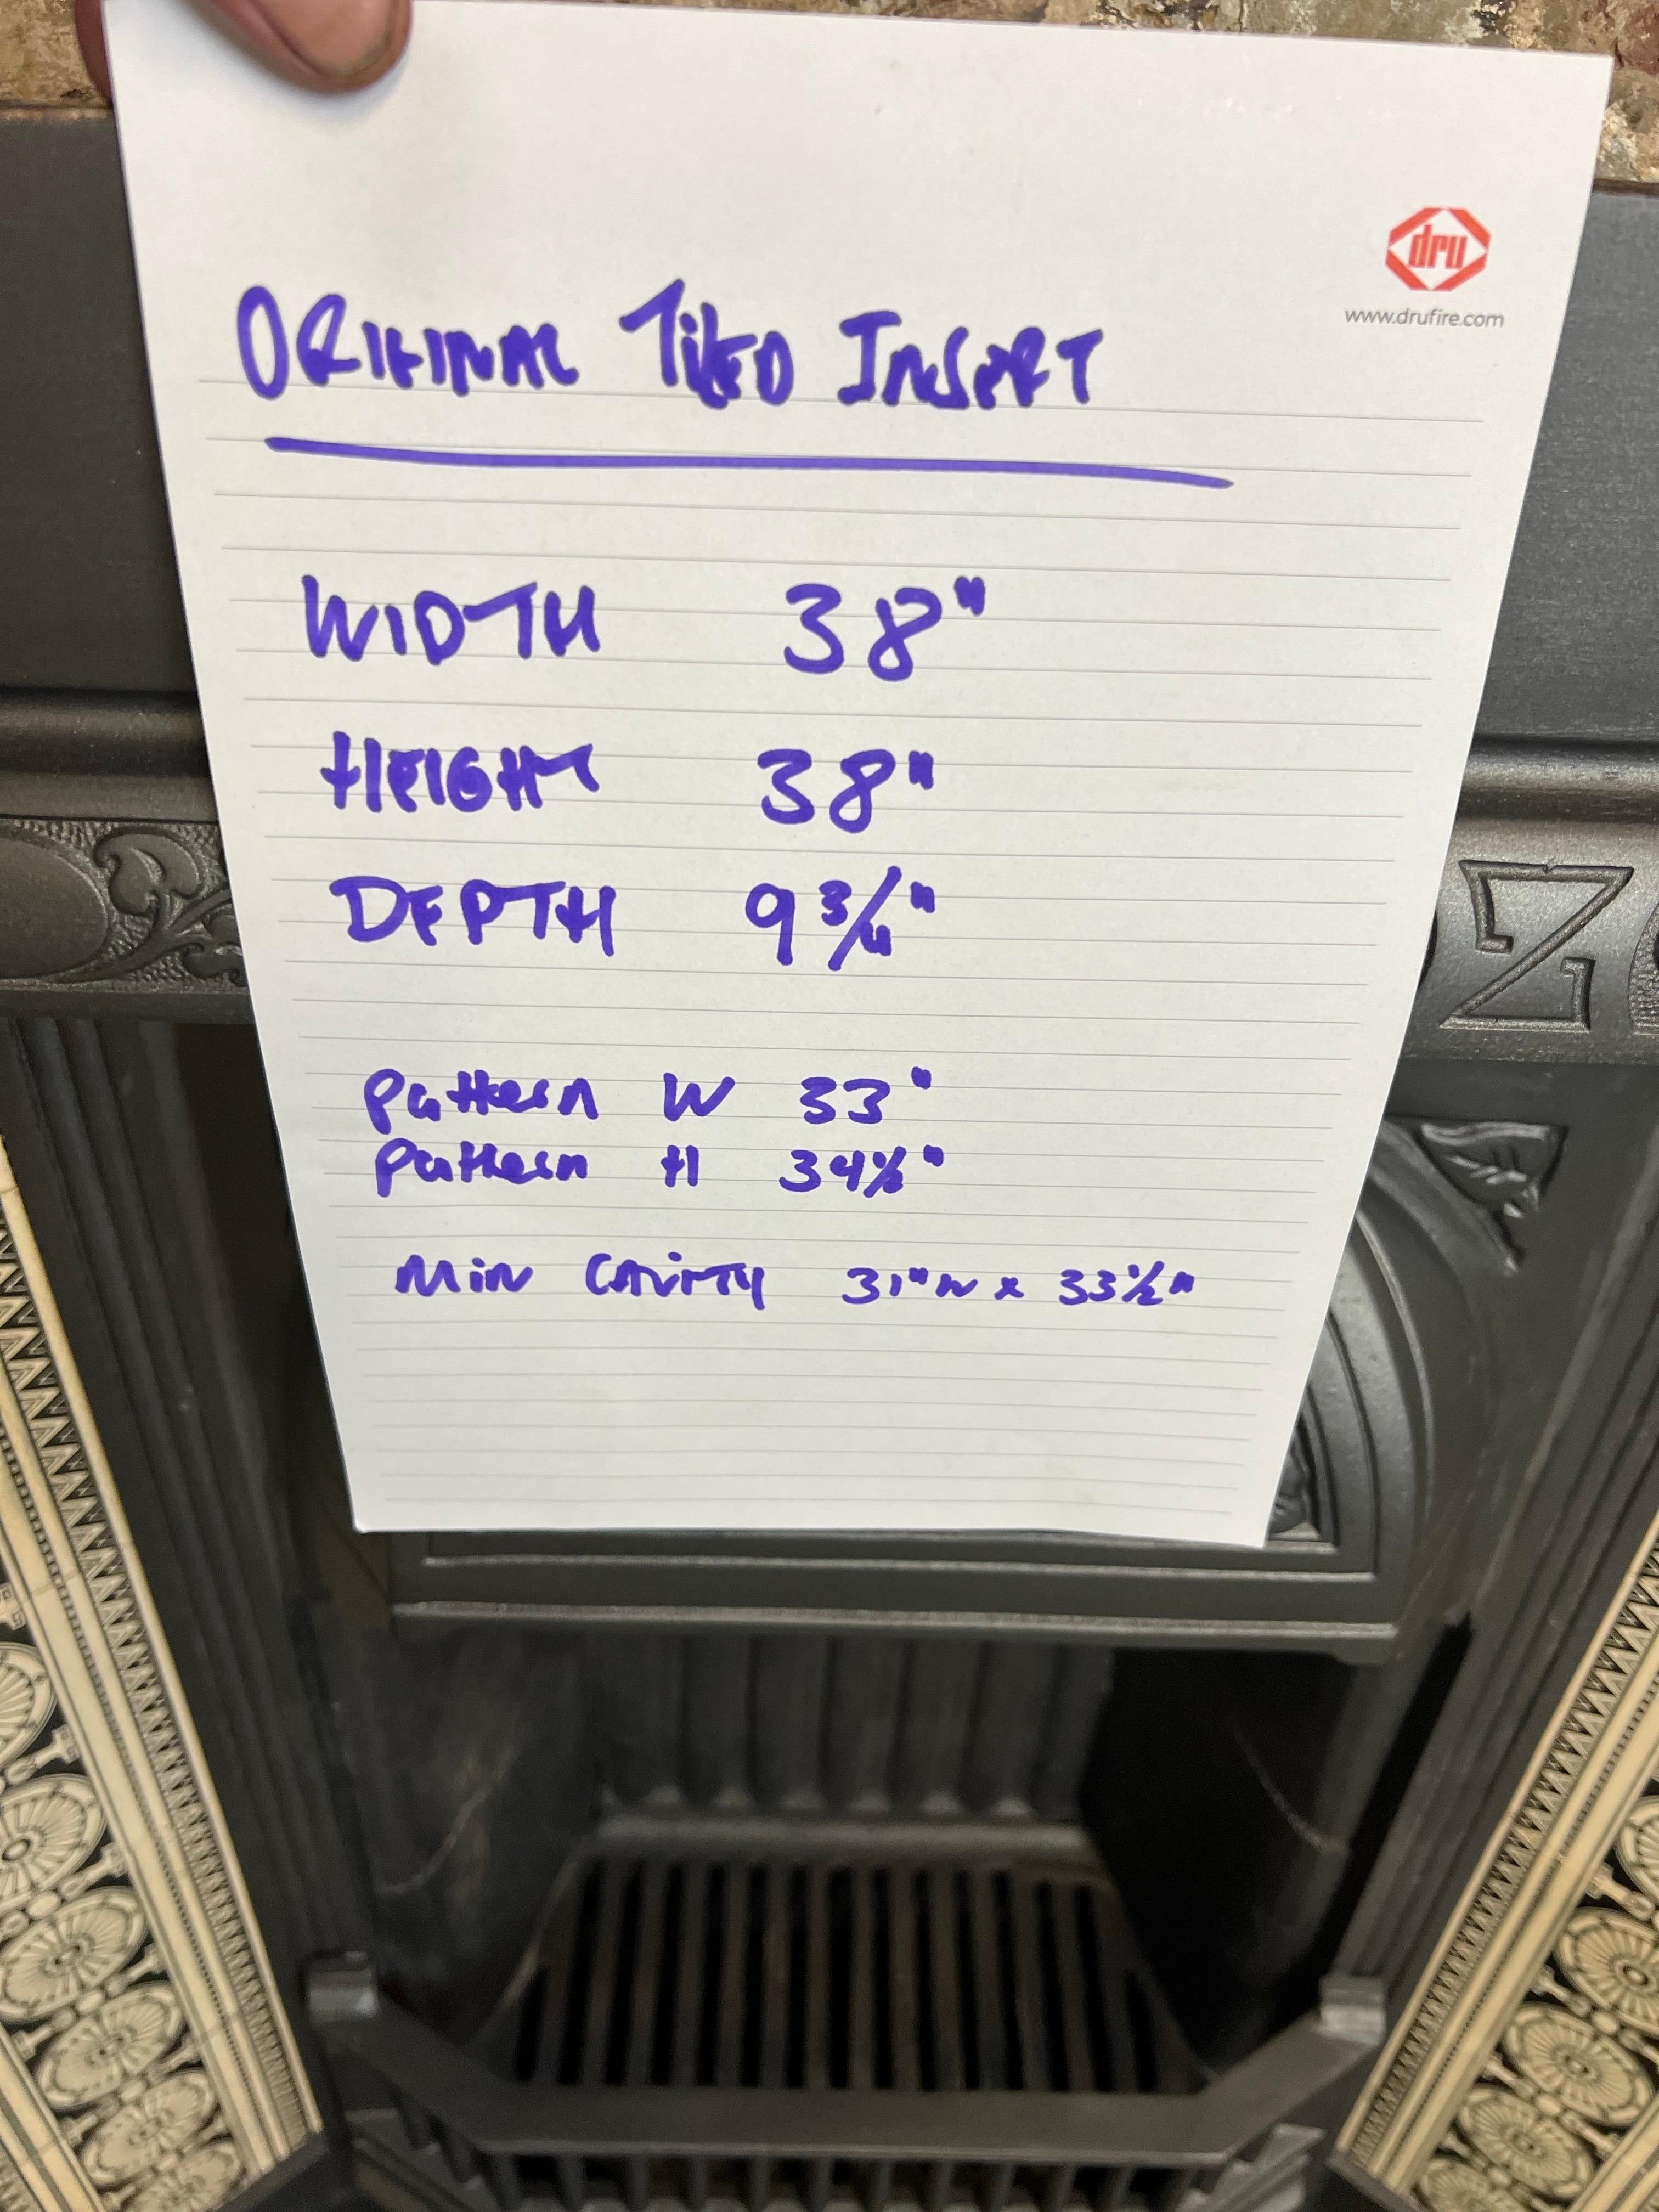 dru
www.drufire.com
ORIGINAL TILED INSERT
WIDTH 38"
HEIGHT 38"
DEPTH 9 3/4"
Pattern W 33"
Pattern H 34½"
MIN CAVITY 31"W x 33½"